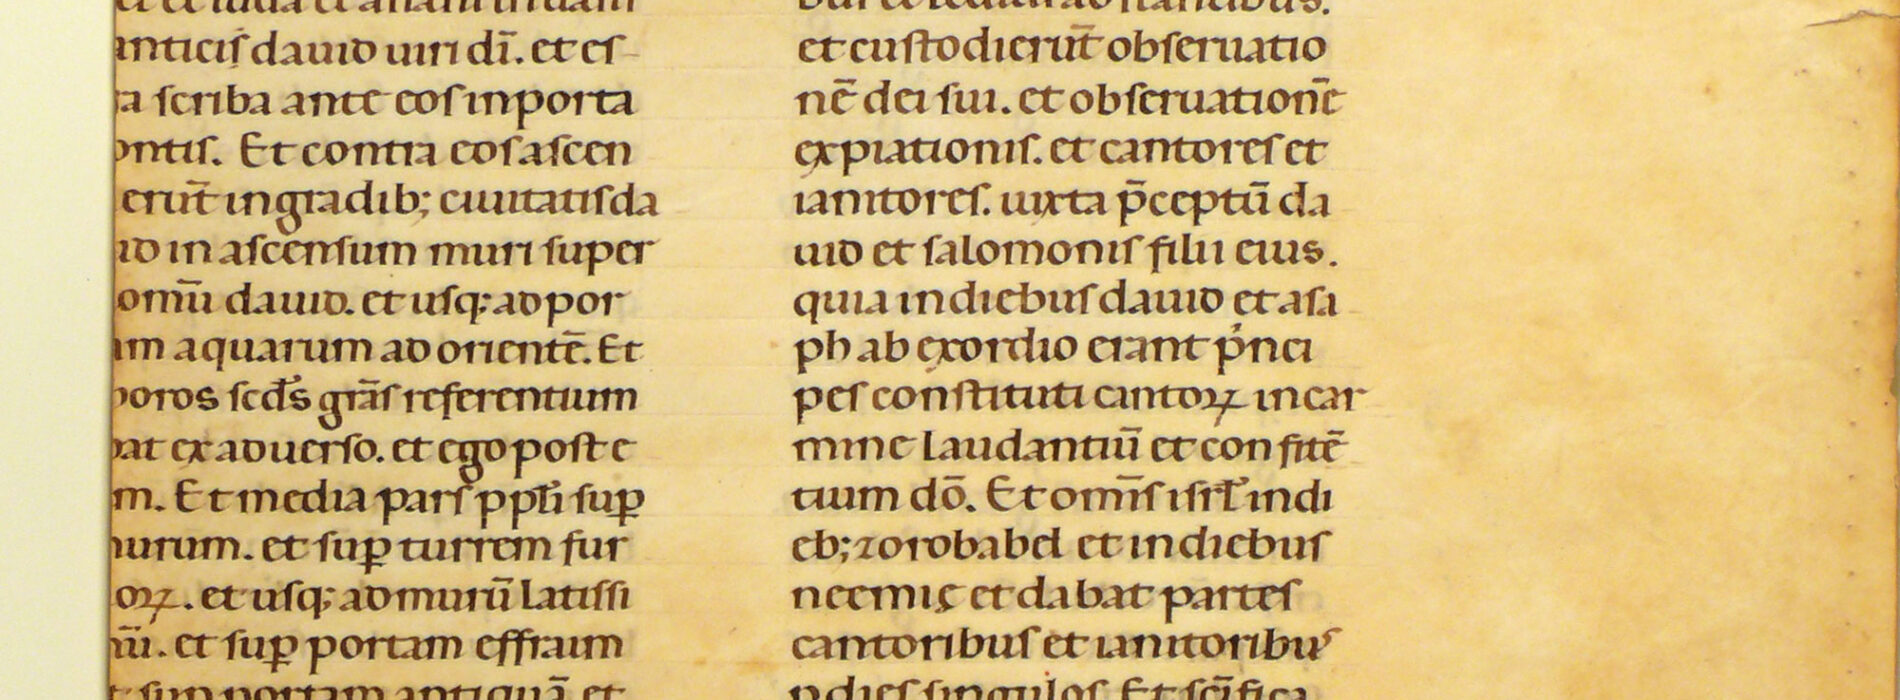 anticis dauid uiri dī. et es
a scriba ante eos in porta
ontis. Et contra eos ascen
erūt in gradib; ciuitatis da
id in ascensum muri super
omū dauid. et usq; ad por
am aquarum ad orientē. Et
horos scd̄s grās referentium
bat ex aduerso. et ego post e
m. Et media pars ppl̄i suꝑ
murum. et suꝑ turrem fur
oꝝ. et usq; ad murū latissi
mū. et suꝑ portam effraim
et custodierūt obseruatio
nē dei sui. et obseruationē
expiationis. et cantores et
ianitores. iuxta p̄ceptū da
uid et salomonis filii eius.
quia in diebus dauid et asa
ph ab exordio erant pͥnci
pes constituti cantoꝝ in car
mine laudantiū et confitē
tium dō. Et om̄is isrl̄ in di
eb; zorobabel et in diebus
neemię et dabat partes
cantoribus et ianitoribus
p dies singulos. Et sc̄ifica